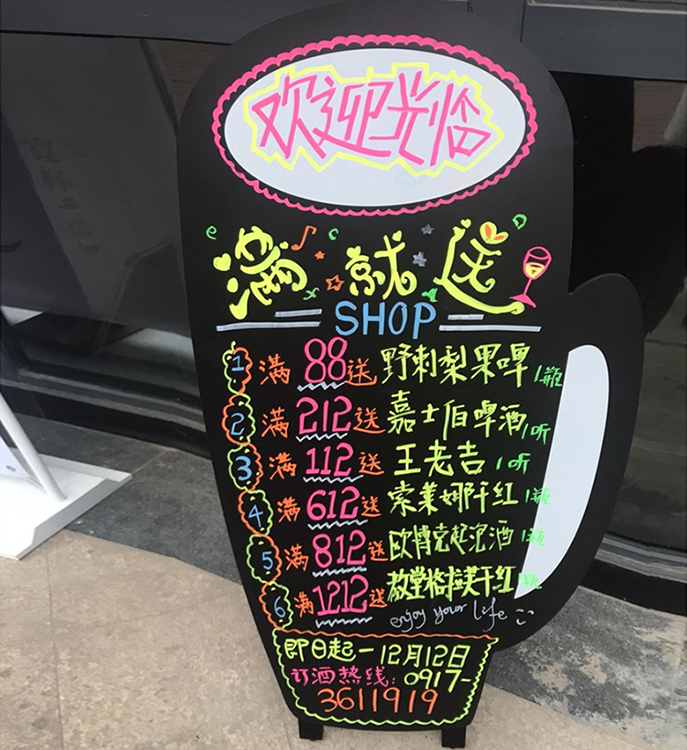 欢迎光临
满就送
SHOP
1 满88送野刺梨果啤1瓶
2 满212送嘉士伯啤酒1听
3 满112送王老吉1听
4 满612送索莱娜干红1瓶
5 满812送欧博克起泡酒1瓶
6 满1212送格拉芙干红1瓶
enjoy your life
即日起-12月12日
订酒热线:0917-
3611919